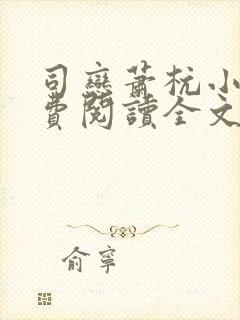 司鸾蕭杭小
費閱讀全文
俞寧